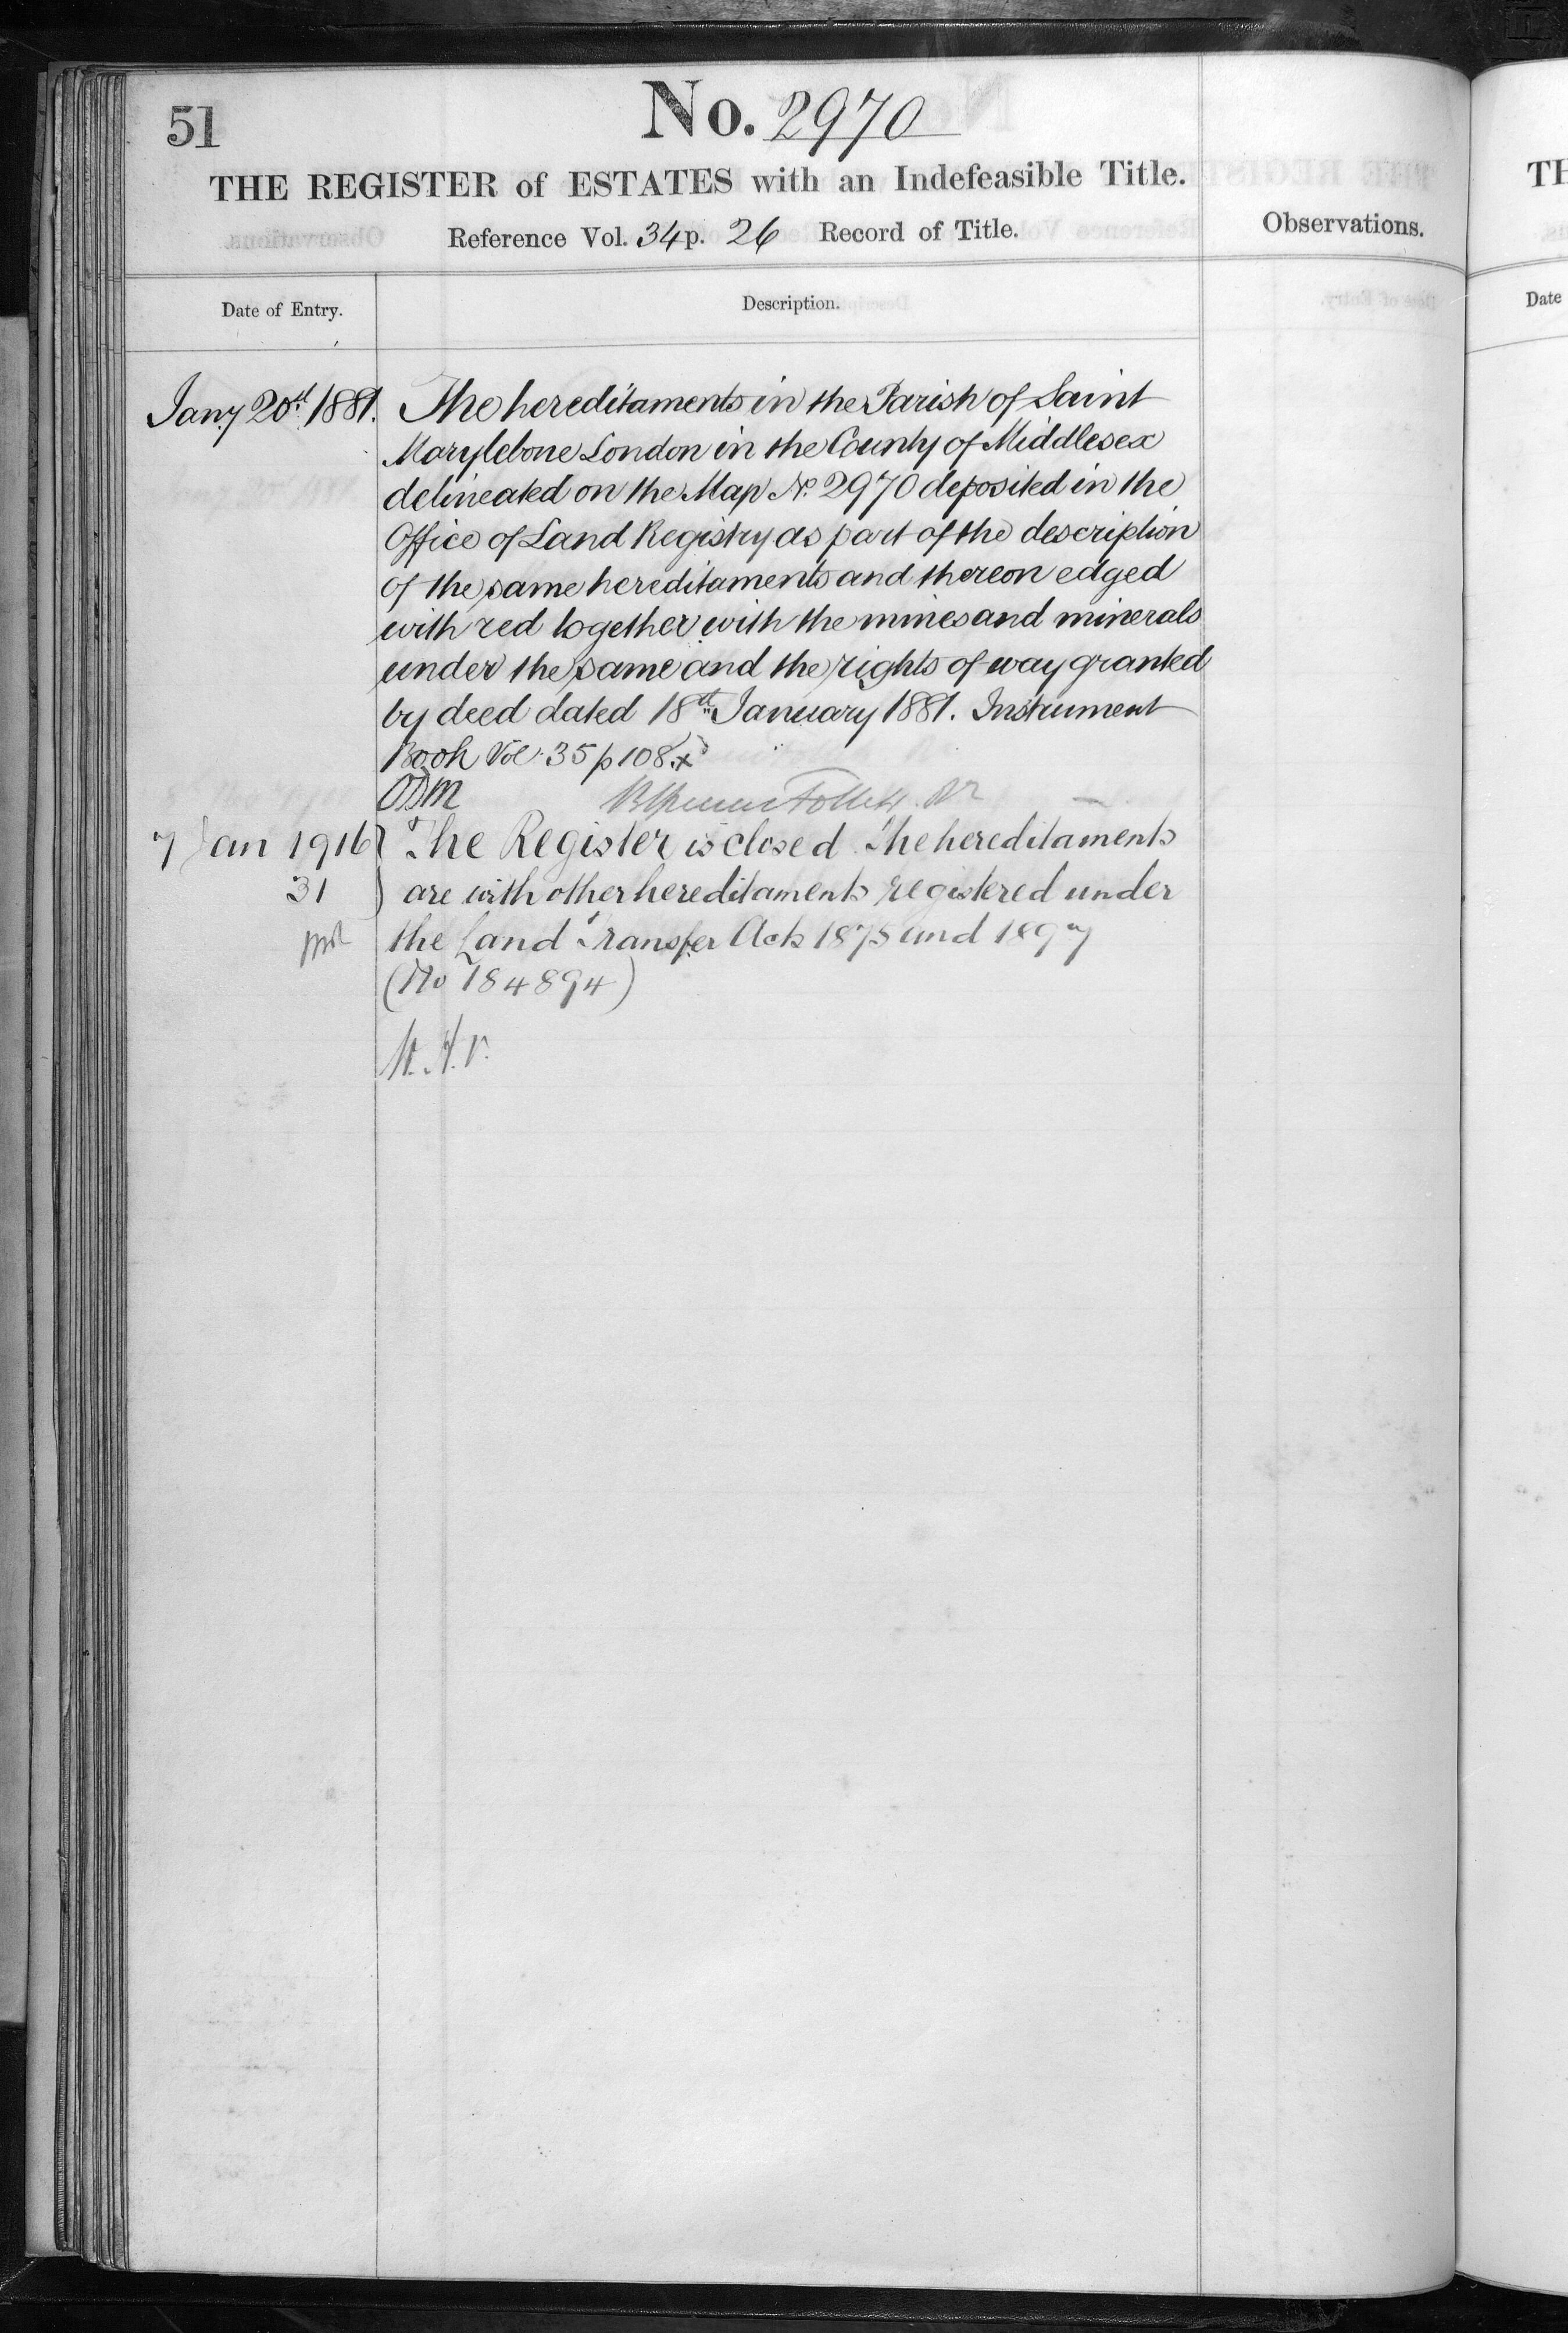 51
No. 2970
THE REGISTER of ESTATES with an Indefeasible Title.
Reference Vol. 34 p. 26 Record of Title.
Observations.
Date of Entry.
Description.
Jany 20th 1881. The hereditaments in the Parish of Saint
Marylebone London in the County of Middlesex
delineated on the Map No. 2970 deposited in the
Office of Land Registry as part of the description
of the same hereditaments and thereon edged
with red together with the mines and minerals
under the same and the rights of way granted
by deed dated 18th January 1881. Instrument
Book Vol. 35 p 108. x
7 Jan 1916 The Register is closed. The hereditaments
31 are with other hereditaments registered under
the Land Transfer Acts 1875 and 1897
(No 184894)
TH
Date